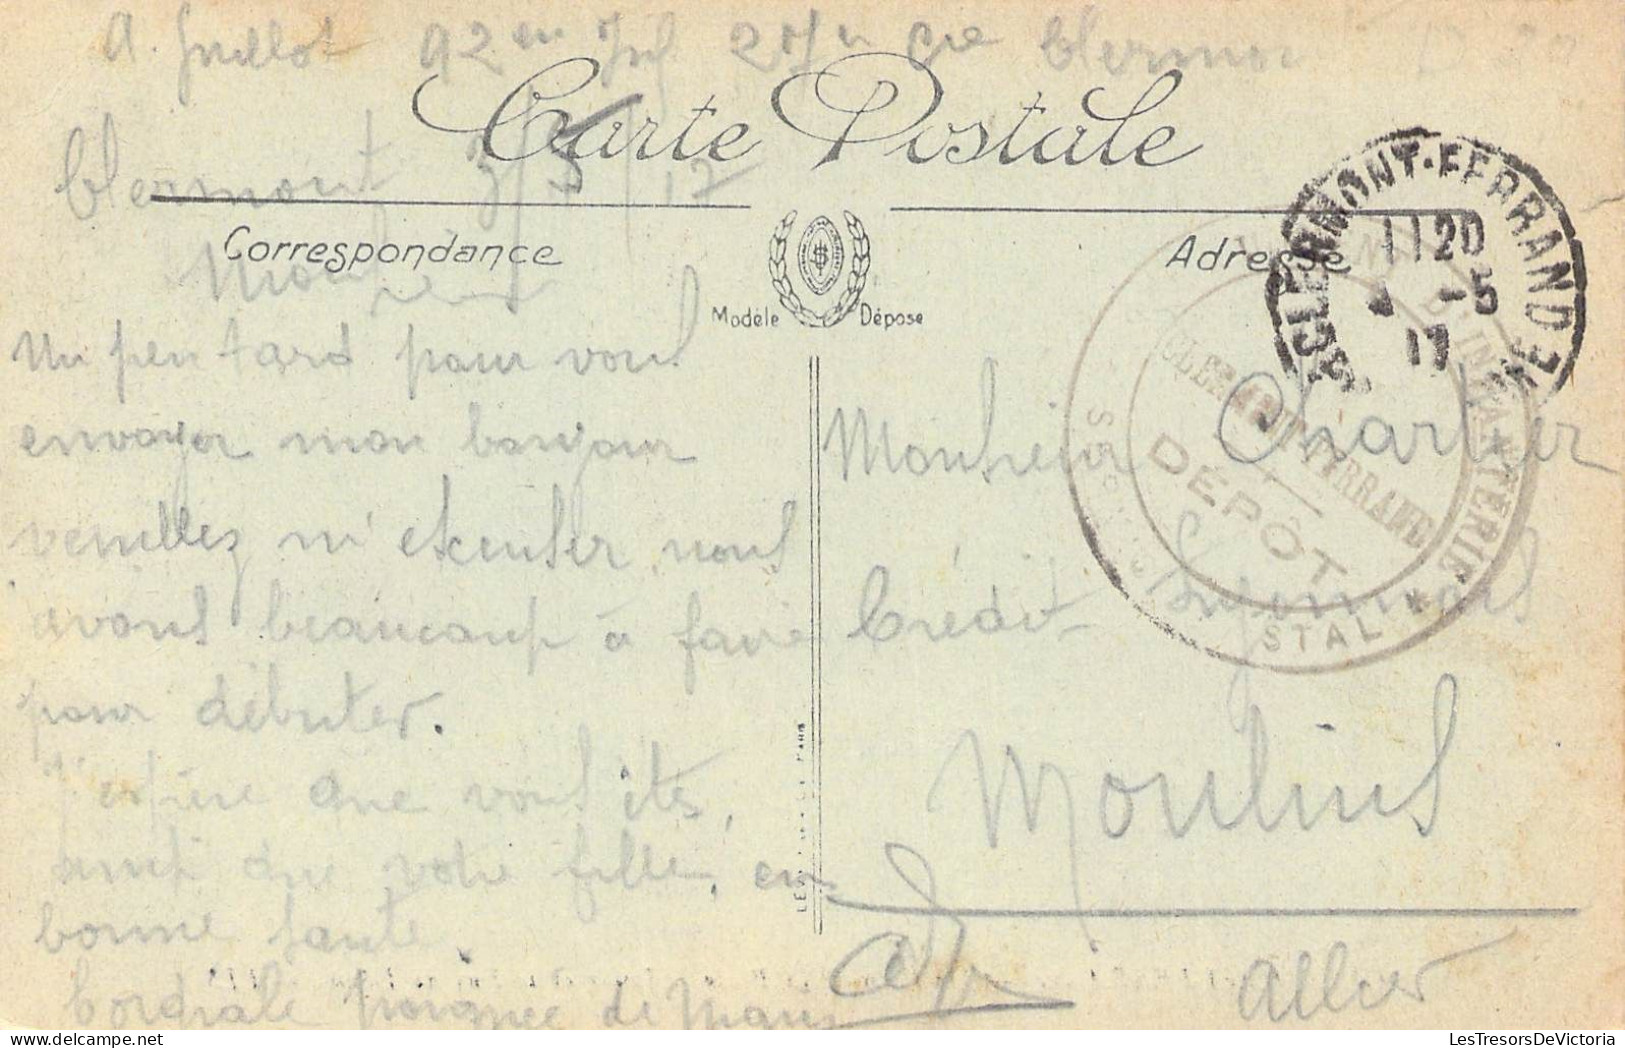 A. Guillot 92em Inf 27me Cie Clermont
Carte Postale
Clermont 3/5/17
Correspondance
Adresse
Monsieur
Modèle Déposé
Un peu tard pour vous
envoyer mon bonjour
veuillez m'excuser nous
avons beaucoup à faire
pour débuter.
J'espère que vous êtes,
ainsi que votre fille, en
bonne santé.
Cordiale poignée de main
CLERMONT-FERRAND
1120
-5
17
D'INFANTERIE
CLERMONT-FERRAND
DÉPÔT
STAL
Monsieur Charlier
Crédit Lyonnais
Moulins
Allier
LesTresorsDeVictoria